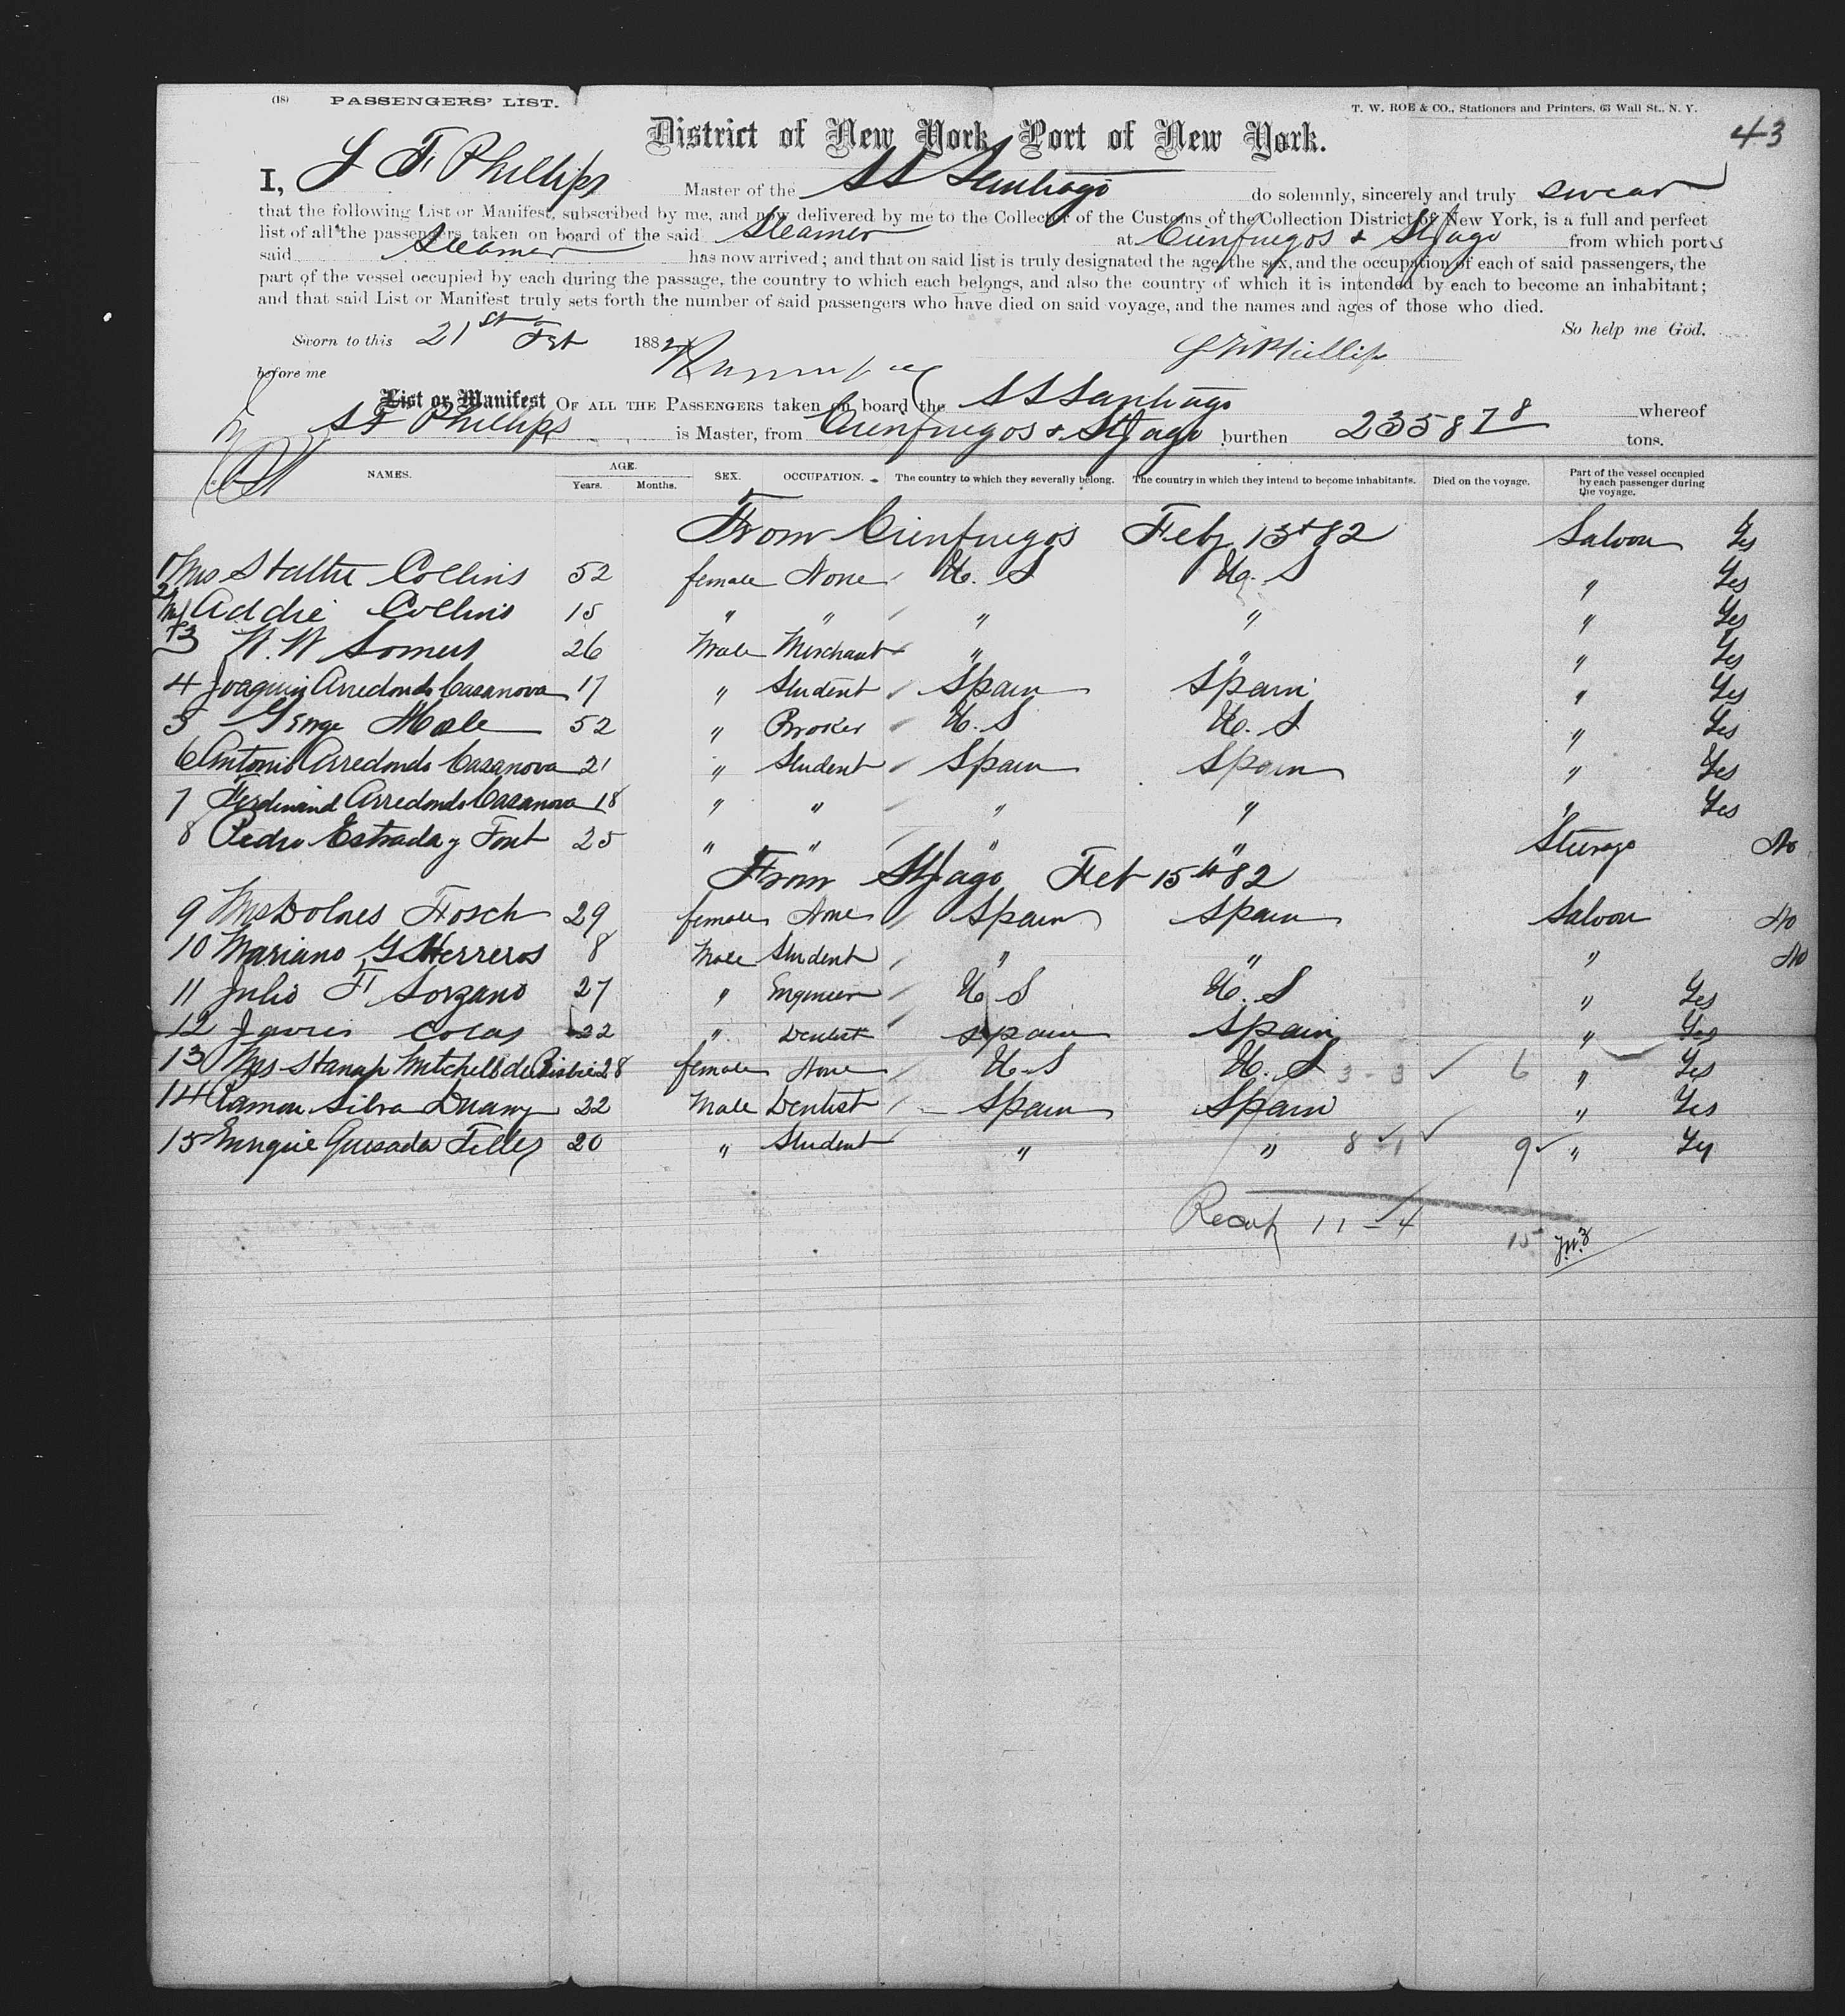 (18) PASSENGERS' LIST. T. W. ROE & CO., Stationers and Printers, 63 Wall St., N. Y.
43
District of New York, Port of New York.
I, S F Phillips Master of the SS Santiago do solemnly, sincerely and truly swear
that the following List or Manifest, subscribed by me, and now delivered by me to the Collector of the Customs of the Collection District of New York, is a full and perfect
list of all the passengers taken on board of the said Steamer at Cienfuegos & St Jago from which ports
said Steamer has now arrived; and that on said list is truly designated the age, the sex, and the occupation of each of said passengers, the
part of the vessel occupied by each during the passage, the country to which each belongs, and also the country of which it is intended by each to become an inhabitant;
and that said List or Manifest truly sets forth the number of said passengers who have died on said voyage, and the names and ages of those who died.
So help me God.
Sworn to this 21st Feb 1882
before me
List or Manifest OF ALL THE PASSENGERS taken on board the SS Santiago whereof
S F Phillips is Master, from Cienfuegos & St Jago burthen 2358 78 tons.
NAMES. AGE. Years. Months. SEX. OCCUPATION. The country to which they severally belong. The country in which they intend to become inhabitants. Died on the voyage. Part of the vessel occupied by each passenger during the voyage.
From Cienfuegos Feby 13th 82 Saloon Yes
1 Mrs Collins 52 female None U. S U. S " Yes
2 Addie Collins 15 " " " " " Yes
3 W. W Somers 26 Male Merchant " " " Yes
4 Joaquin Arredondo Casanova 17 " Student Spain Spain " Yes
5 George Mole 52 " Broker U. S U. S " Yes
6 Antonio Arredondo Casanova 21 " Student Spain Spain " Yes
7 Ferdinand Arredondo Casanova 18 " " " " " Yes
8 Pedro Estrada y Font 25 " " " " Steerage No
From St Jago Feb 15th 82
9 Mrs Dolores Fosch 29 female None Spain Spain Saloon No
10 Mariano G Herreros 8 Male Student " " " No
11 Julio F Sorzano 27 " Engineer U. S U. S " Yes
12 Javier Colas 22 " Dentist Spain Spain " Yes
13 Mrs Mitchell de 28 female None U. S U. S 3 - 3 ✓ 6 " Yes
14 Ramon Silva Duany 22 Male Dentist Spain Spain " Yes
15 Enrique Quesada Tellez 20 " Student " " 8 - 1 ✓ 9 ✓ " Yes
Recap 11 - 4 15